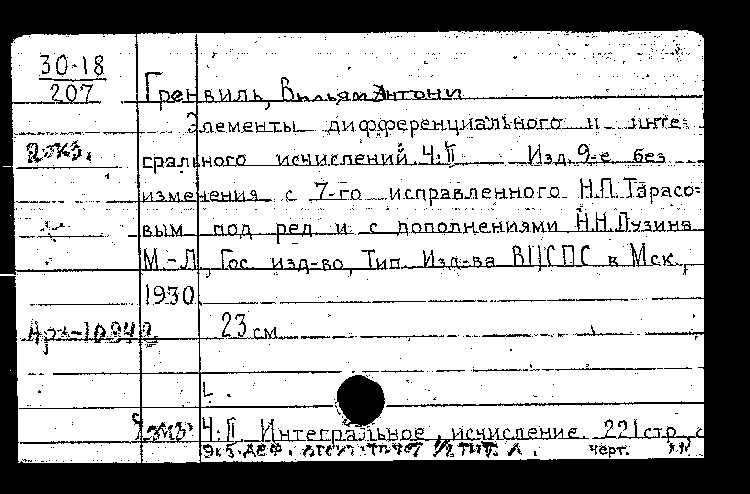 30-18
207
Гренвиль, Вильям Антони
Элементы дифференциального и инте-
2экз.
грального исчислений. Ч:II Изд. 9-е без
изменения с 7-го исправленного Н.П.Тарасо-
вым под ред и с дополнениями Н.Н.Лузина
М.-Л, Гос. изд-во, Тип. Изд-ва ВЦСПС в Мск.,
1930.
23 см
Ч:II Интегральное исчисление. 221 стр. с
черт.